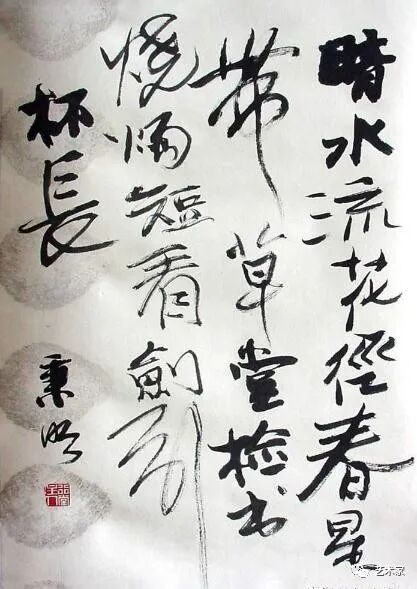 暗水流花徑春星
帶草堂檢书
燒燭短看劍引
杯長
秉明
艺术家